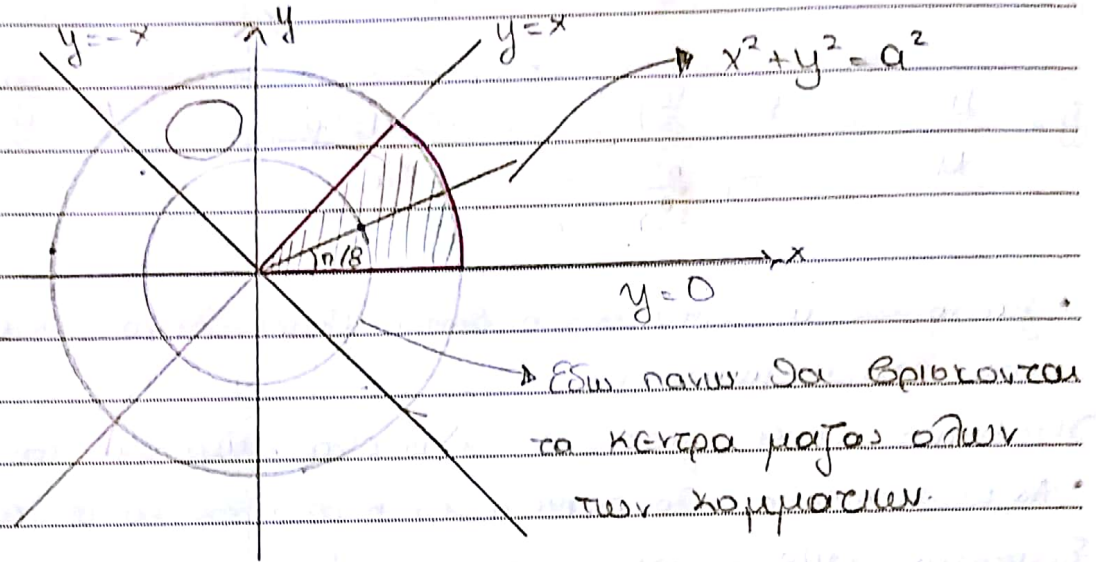 y=-x
y
y=x
x²+y²=a²
π/8
x
y=0
Εδω πανω θα βρισκονται
τα κεντρα μαζας ολων
των κομματιων.